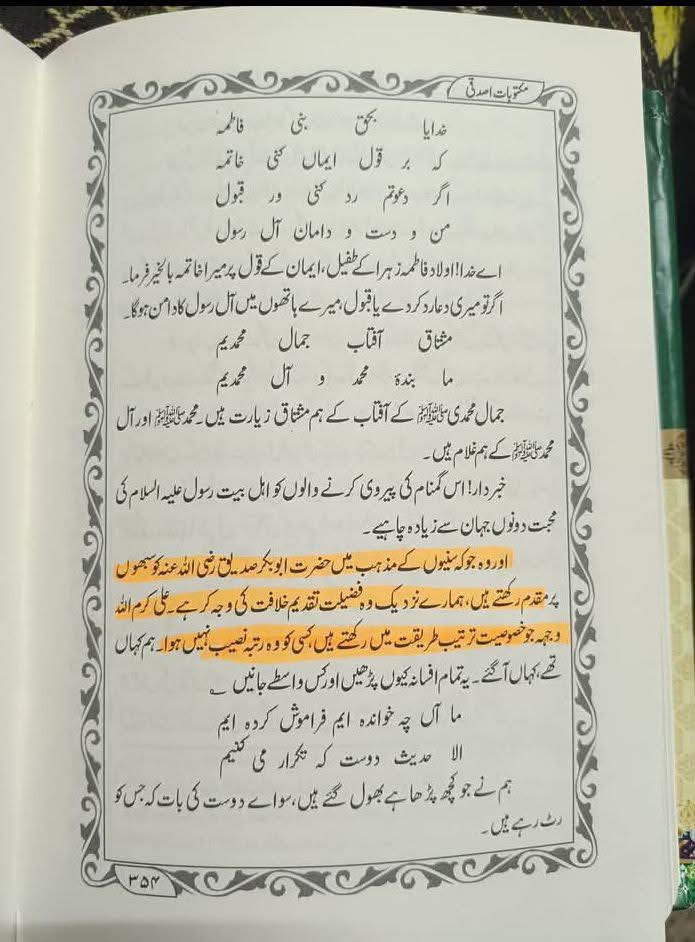 مکتوبات اصدقی
خدایا بحق بنی فاطمہ
کہ بر قول ایماں کنی خاتمہ
اگر دعوتم رد کنی ور قبول
من و دست و دامان آل رسول
اے خدا! اولاد فاطمہ زہرا کے طفیل، ایمان کے قول پر میرا خاتمہ بالخیر فرما۔
اگر تو میری دعا رد کر دے یا قبول، میرے ہاتھوں میں آل رسول کا دامن ہوگا۔
مشتاق آفتاب جمال محمدیم
ما بندۂ محمد و آل محمدیم
جمال محمدی ﷺ کے آفتاب کے ہم مشتاق زیارت ہیں۔ محمد ﷺ اور آل
محمد ﷺ کے ہم غلام ہیں۔
خبردار! اس گمنام کی پیروی کرنے والوں کو اہل بیت رسول علیہ السلام کی
محبت دونوں جہان سے زیادہ چاہیے۔
اور وہ جو کہ سنیوں کے مذہب میں حضرت ابوبکر صدیق رضی اللہ عنہ کو سبھوں
پر مقدم رکھتے ہیں، ہمارے نزدیک وہ فضیلت تقدیم خلافت کی وجہ کر ہے۔ علی کرم اللہ
وجہہ جو خصوصیت ترتیب طریقت میں رکھتے ہیں، کسی کو وہ رتبہ نصیب نہیں ہوا۔ ہم کہاں
تھے، کہاں آگئے۔ یہ تمام افسانہ کیوں پڑھیں اور کس واسطے جانیں ؎
ما آں چہ خواندہ ایم فراموش کردہ ایم
الا حدیث دوست کہ تکرار می کنیم
ہم نے جو کچھ پڑھا ہے بھول گئے ہیں، سواے دوست کی بات کہ جس کو
رٹ رہے ہیں۔
۳۵۴